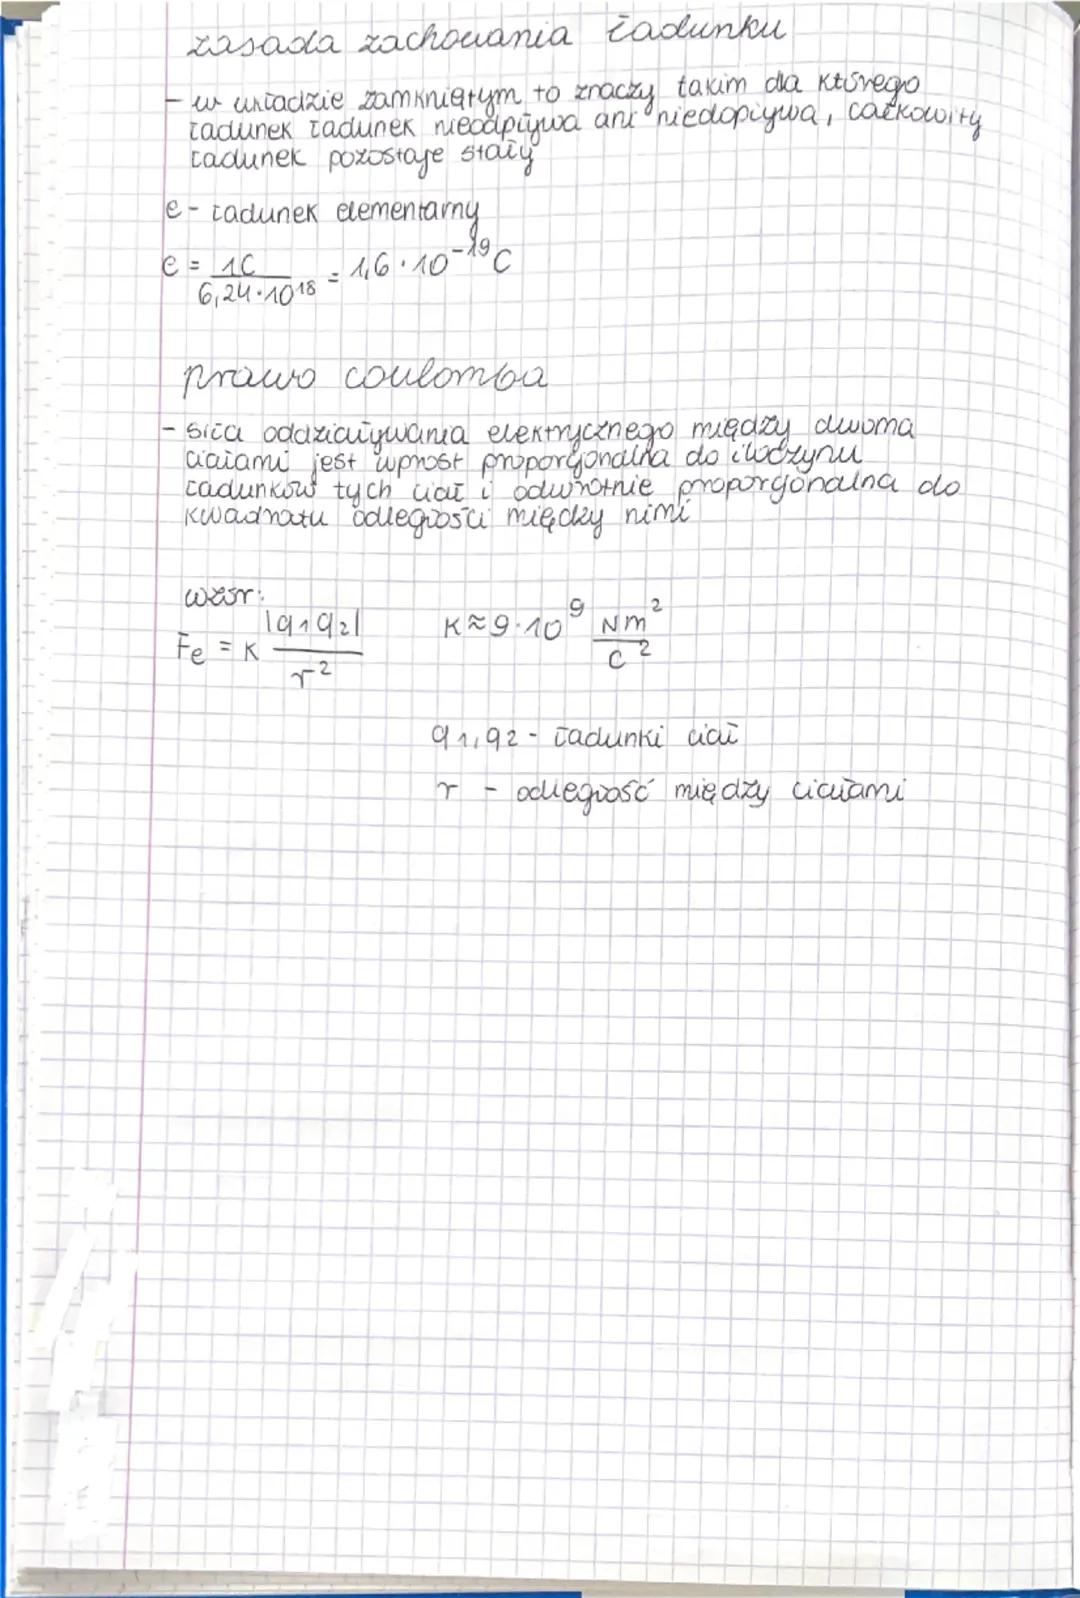 zasada zachowania ładunku
- w układzie zamkniętym to znaczy takim dla którego
ładunek ładunek nieodpływa ani niedopływa, całkowity
ładunek pozostaje stały
e - ładunek elementarny
e = 1C / 6,24·10^18 = 1,6·10^-19 C
prawo coulomba
- siła oddziaływania elektrycznego między dwoma
ciałami jest wprost proporcjonalna do iloczynu
ładunków tych ciał i odwrotnie proporcjonalna do
kwadratu odległości między nimi
wzór:
Fe = K |q1q2| / r^2    K≈9·10^9 Nm^2 / C^2
q1,q2 - ładunki ciał
r - odległość między ciałami